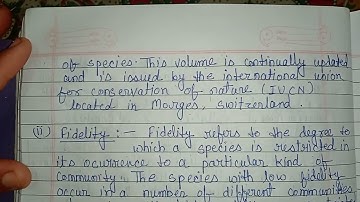 of species. This volume is continually updated
and is issued by the international union
for conservation of nature (IUCN)
located in Morges, Switzerland.
(ii) Fidelity :- Fidelity refers to the degree to
which a species is restricted in
its ocurrence to a particular kind of
community. The species with low fidelity
occur in a number of different communities